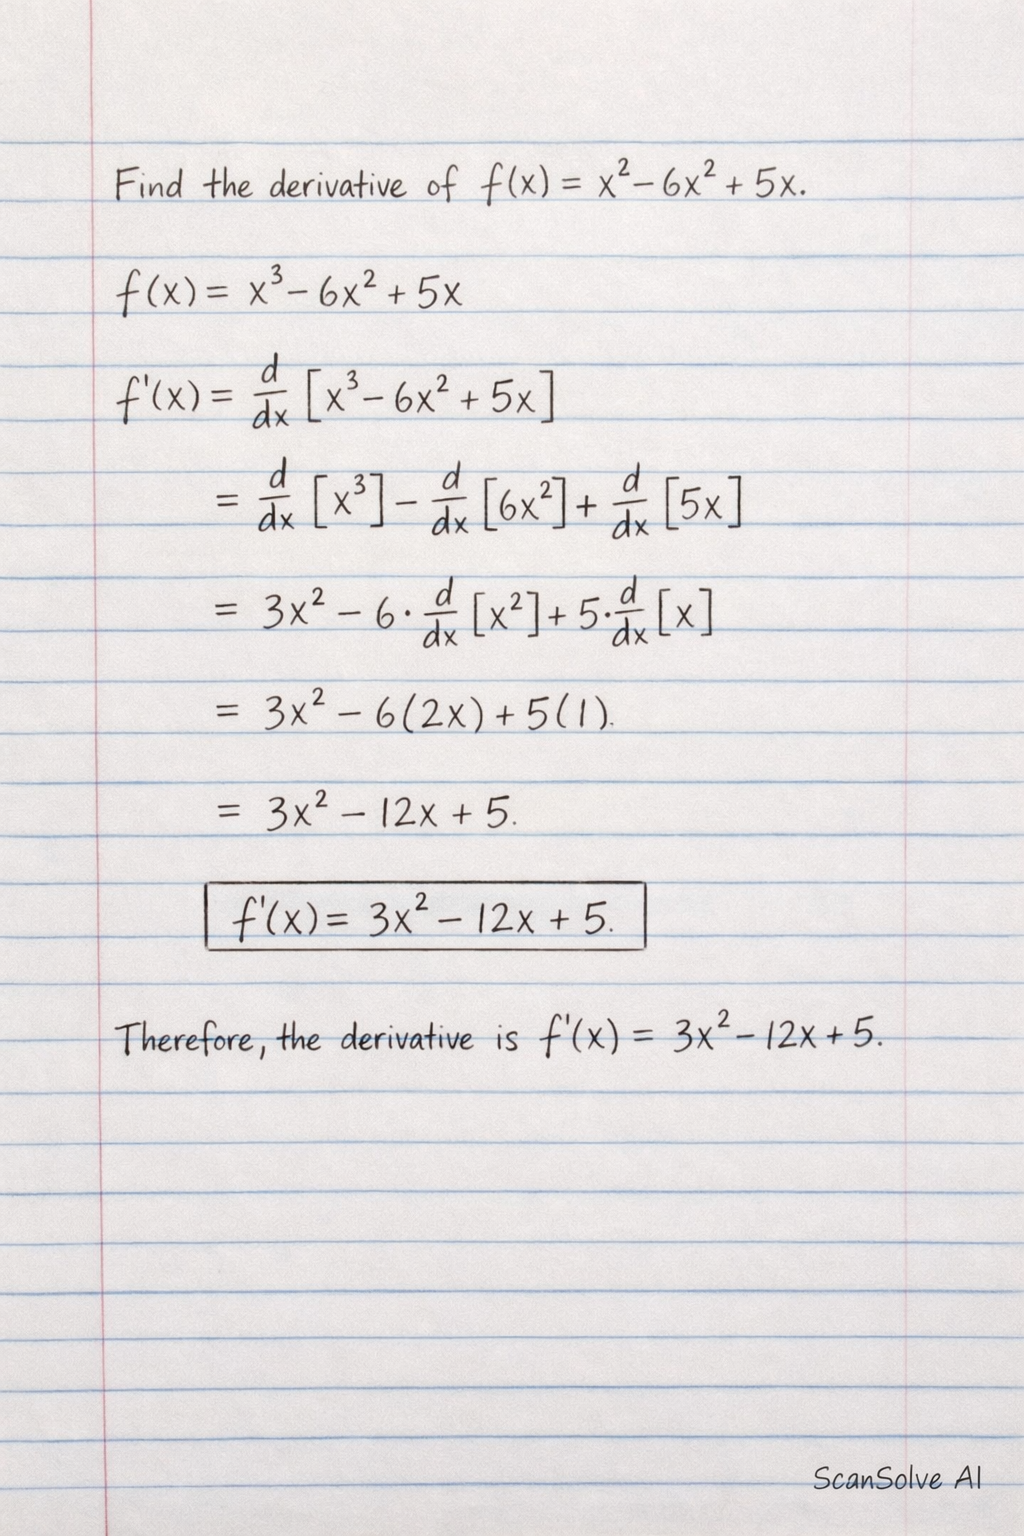 Find the derivative of f(x) = x² − 6x² + 5x.
f(x) = x³ − 6x² + 5x
f'(x) = d/dx [x³ − 6x² + 5x]
= d/dx [x³] − d/dx [6x²] + d/dx [5x]
= 3x² − 6 · d/dx [x²] + 5 · d/dx [x]
= 3x² − 6(2x) + 5(1).
= 3x² − 12x + 5.
f'(x) = 3x² − 12x + 5.
Therefore, the derivative is f'(x) = 3x² − 12x + 5.
ScanSolve AI